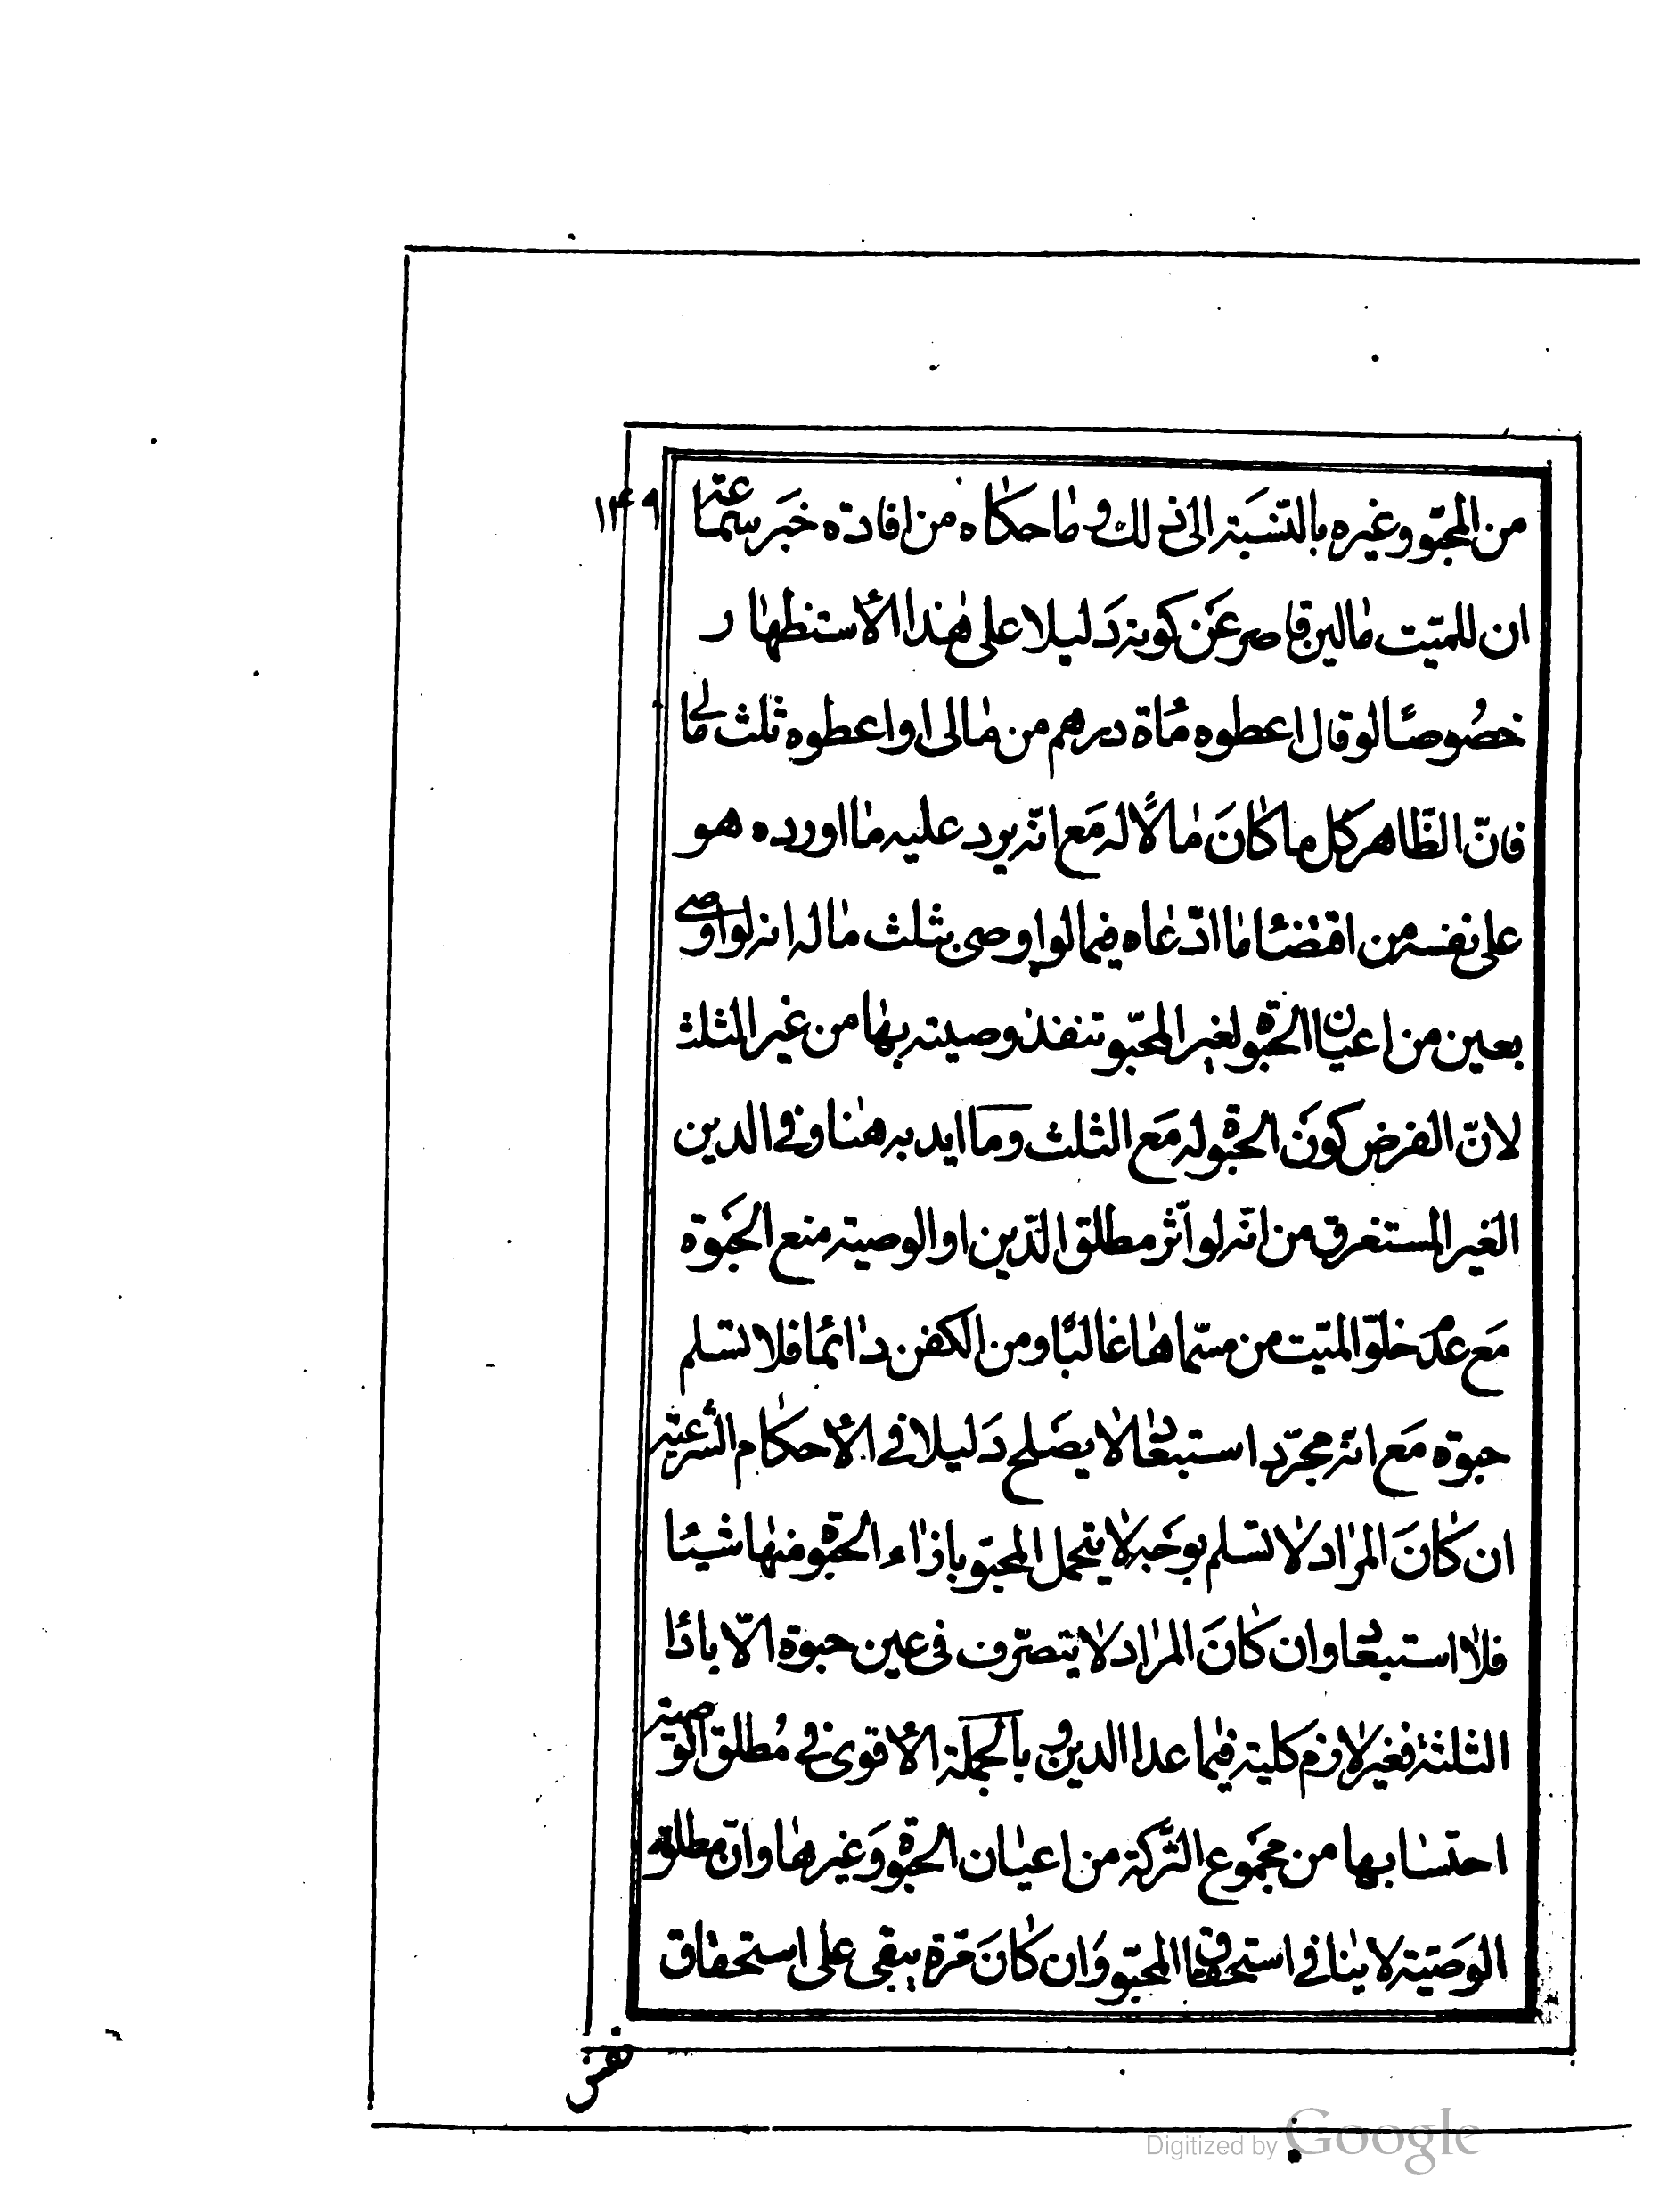 ١٤٩
من المحبّو وغيره بالنّسبَة الى ذلك و مٰا حكاٰه من افادته خبَر سماعة
ان للميّت مٰالين قاصر عَن كونه دَليلا على هٰذا الأستظهٰار
خصُوصًا لو قال اعطوه مُاة درهم من مٰالى او اعطوه ثلث مالى
فانّ الظّاهر كل ما كاٰنَ مٰالًا له مَع انّه يرد عليه مٰا اورده هو
على نفسه من اقتضٰا مٰا ادّعٰاه فيما لو اوصى بثلث مٰاله انه لو اوصى
بعين من اعيان الحبوة لغير المحبّو تنفذ وصيته بهٰا من غير الثلث
لانّ الفرض كونَ الحبوة له مَع الثلث وما ايد به هٰنا وفى الدين
الغير المستغرق من انّه لو اثّر مطلق الدّين او الوصيته منع الحَبوة
مَع عدَم خلوّ الميّت من مسمّاهٰا غالبًا ومن الكفن دٰائما فلا تسلم
حبوة مَع انّه مجرّد استبعٰاد لا يصَلح دَليلا فى الأحكاٰم الشّرعيّة
ان كاٰنَ المرٰاد لٰا تسلم بوجَه لٰا يتحمل المحبّو بازٰاء الحبوة منهٰا شيئا
فلٰا استبعٰاد وان كاٰنَ المرٰاد لٰا يتصرّف فى عين حبوة الّا بادٰا
الثلثة فغير لازم كلية فيمٰا عدا الدين و بالجملَة الأقوى فى مُطلق الوصية
احتسٰابها من مجمُوع التّركة من اعيٰان الحبوة وَغيرهٰا وانّ مطلق
الوَصّية لا ينٰافى استحقٰاق المحبّو وَان كاٰنَ مرّة يبقى على استحقاق
Digitized by Google